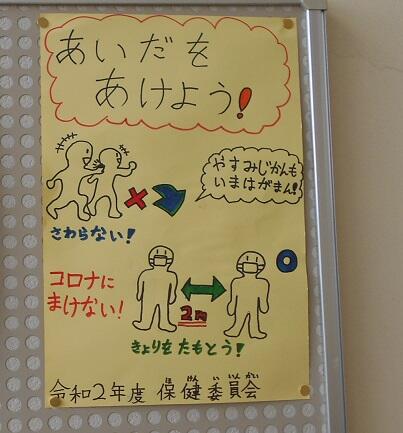 あいだを
あけよう!
やすみじかんも
いまはがまん!
さわらない!
コロナに
まけない!
2m
きょりをたもとう!
令和2年度 保健委員会